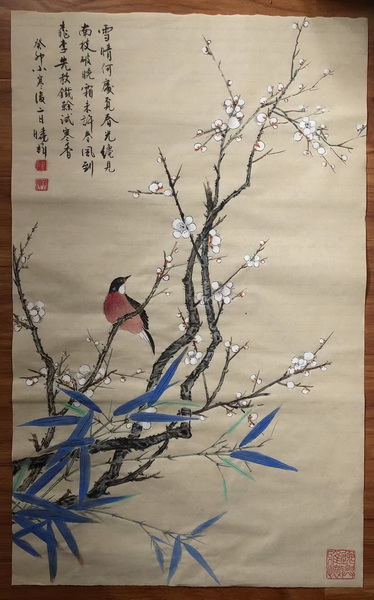 雪晴何處覓春光纔見
南枝破曉霜未許春風到
桃李先教鐵榦試寒香
癸卯小寒後二日